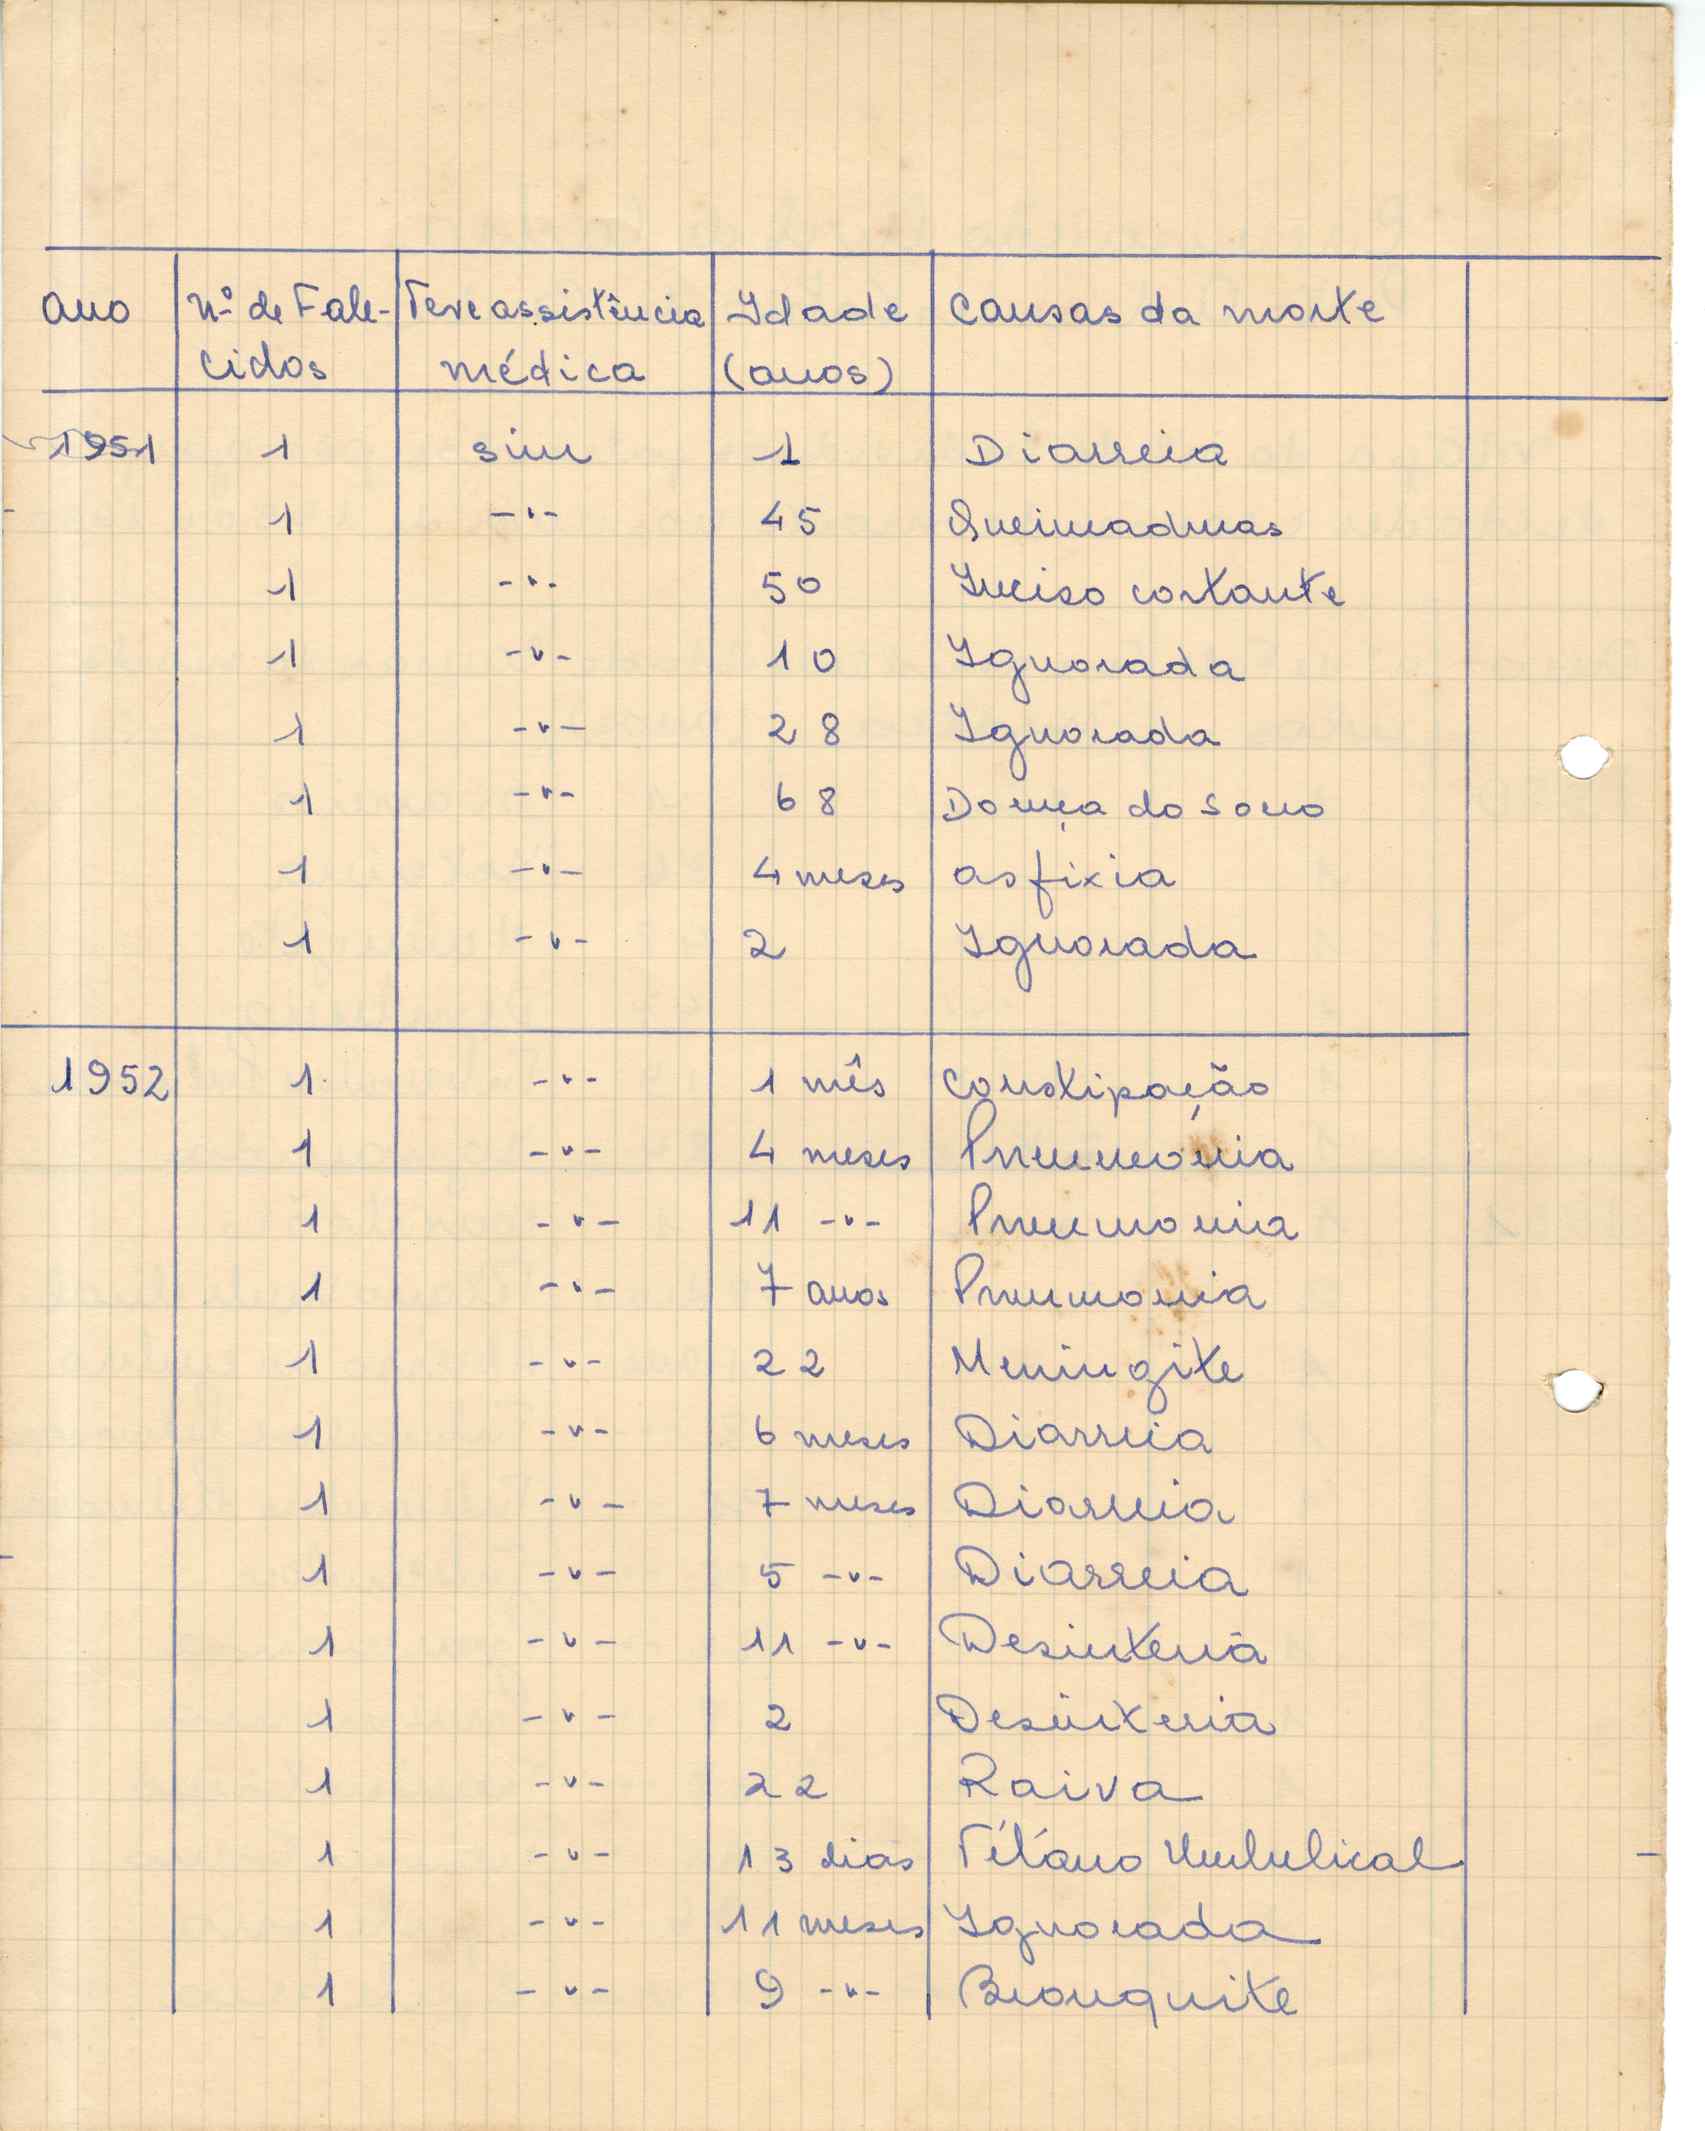 Ano Nº de Fale- Teve assistência Idade Causas da morte
cidos médica (anos)
1951 1 sim 1 Diarreia
1 -"- 45 Queimaduras
1 -"- 50 Inciso cortante
1 -"- 10 Ignorada
1 -"- 28 Ignorada
1 -"- 68 Doença do Sono
1 -"- 4 meses asfixia
1 -"- 2 Ignorada
1952 1 -"- 1 mês Constipação
1 -"- 4 meses Pneumonia
1 -"- 11 -"- Pneumonia
1 -"- 7 anos Pneumonia
1 -"- 22 Meningite
1 -"- 6 meses Diarreia
1 -"- 7 meses Diarreia
1 -"- 5 -"- Diarreia
1 -"- 11 -"- Desinteria
1 -"- 2 Desinteria
1 -"- 22 Raiva
1 -"- 13 dias Tétáno Umbulical
1 -"- 11 meses Ignorada
1 -"- 9 -"- Bronquite